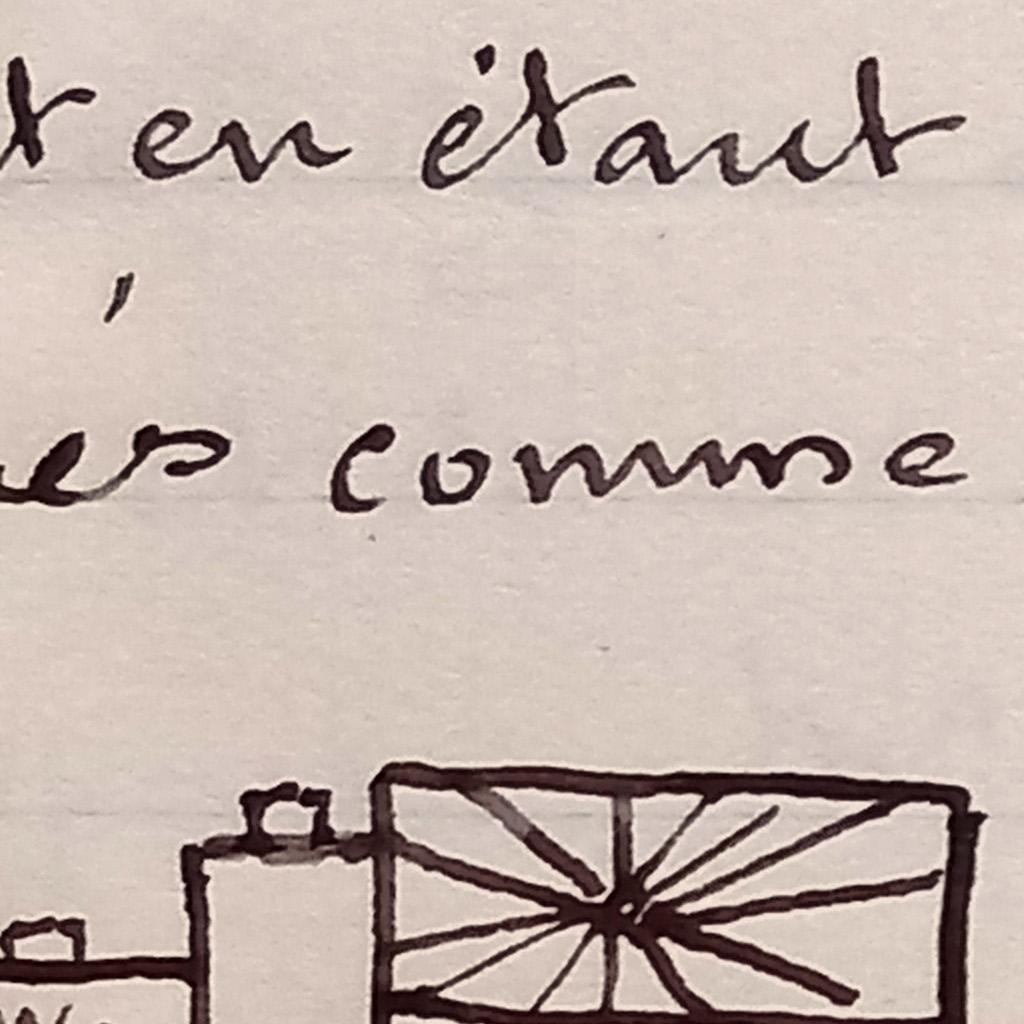 t en étant
es comme